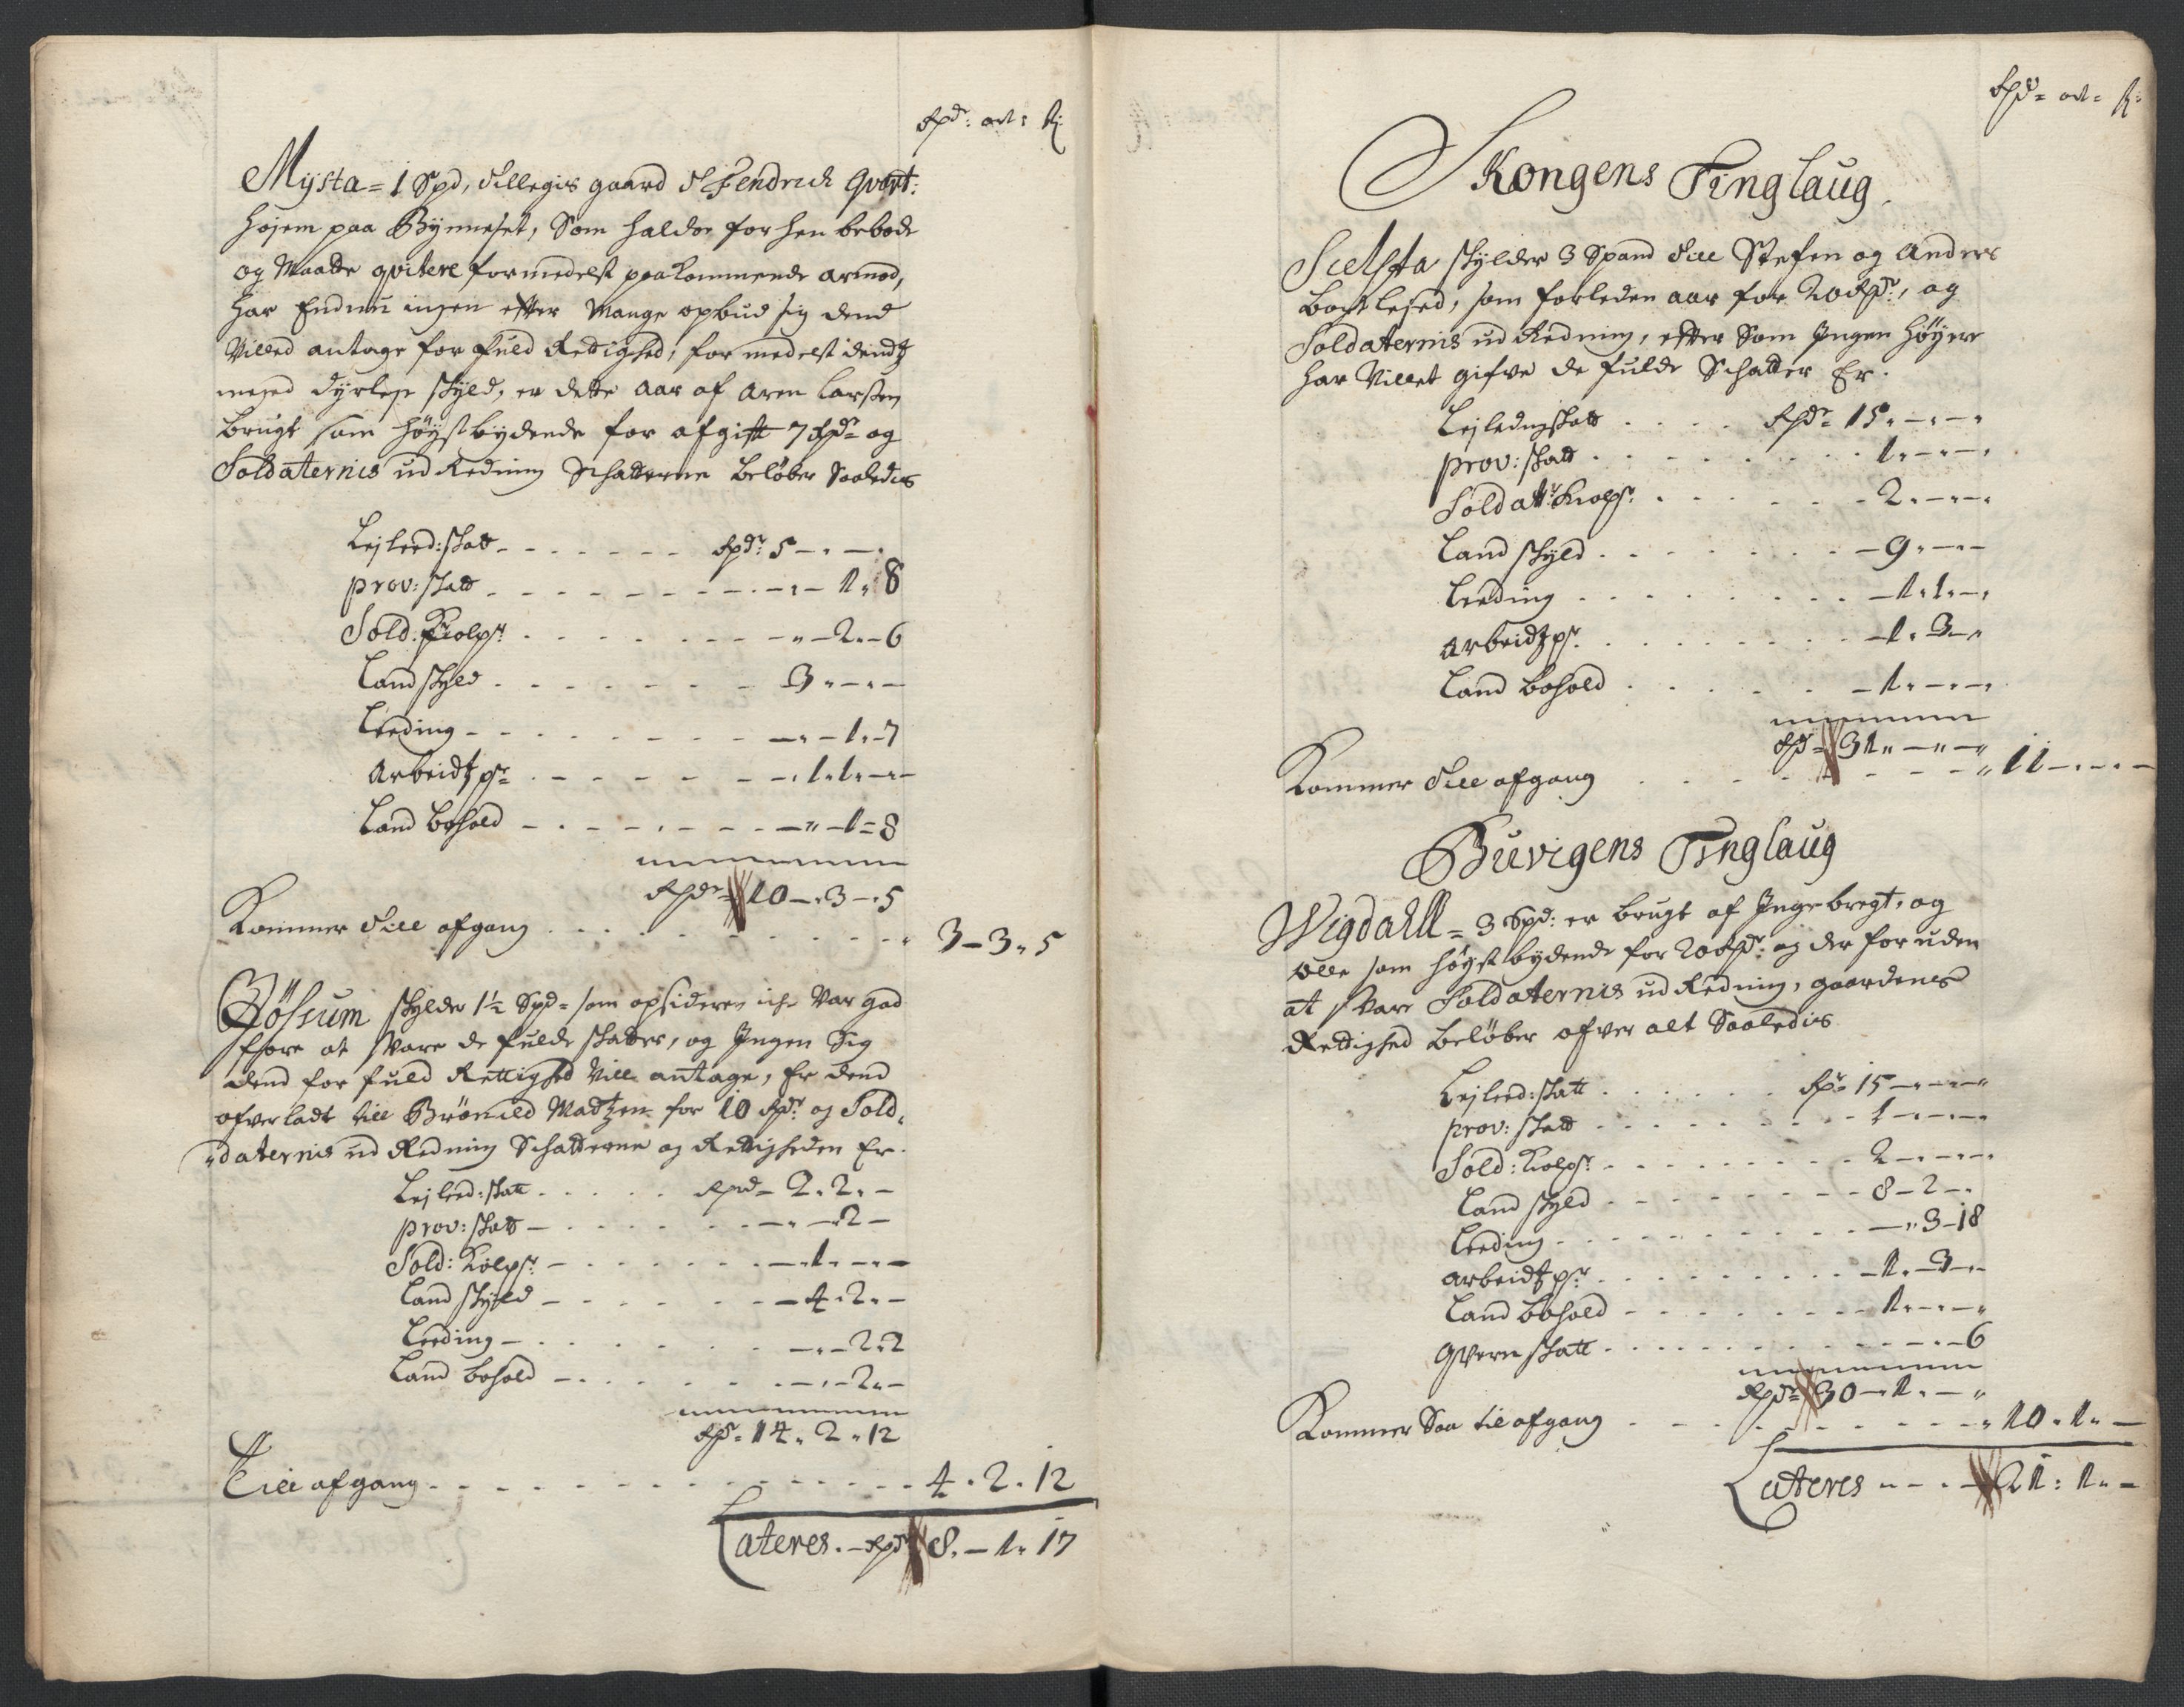 Rpd: ort: ß:
Mysta = 1 Spd, tillegis gaard t Fendrich Qvart:
højem paa Bynneset, Som Haldor for hen bebode
og Maatte qvitere formedelst paakommende armod,
har Endnu ingen effter Mange opbud sig dend
Villed antage for fuld Rettighed, formedelst dendtz
meged dyrlese skyld, er dette aar af Aren Larsen
brugt som høystbydende for afgift 7 Rpdr og
Soldaternis ud Redning Schatterne beløber Saaledis
Lejled: skatt - - - Rpdr: 5 - " -
prov: skatt - - - " - 1 " 8
Sold: Kiolpr: - - - " - 2 - 6
Landskyld - - - 3 " - " -
Leeding - - - " - 1 " - 7
Arbeidtzpr - - - " 1 " 1 " - " -
Land bohold - - - " - 1 = 8
Rpdr = 10 - " 3 - " 5
Kommer till afgang - - - " 3 - 3 " 5
Gösum skylder 1½ Spd = som opsideren iche Var god
fore at svare de fulde skatter, og Ingen Sig
dend for fuld Rettighed Vill antage, Er dend
ofverladt till Brönild Madtzen for 10 Rpdr og Sold,
"daternis ud Redning Schatterne og Rettigheden Er
Lejled: skatt - - - Rpd - 2 " 2 " -
prov: skatt - - - " - 2 -
Sold: Kolpr: - - - 1 " - " -
Landskyld - - - 4 " 2 " -
Leeding - - - " - 2 " 2
Land bohold - - - " - 2 " -
Rp = 14 " 2 " 12
Till afgang - - - 4 " 2 " 12
Lateres. - Rpdr 8 " - 1 " 17
Rpd = ort = ß:
Skongens Tinglaug.
Scelsta skylder 3 Spand till Steffen og Anders
bortlejed, som forleden aar for 20 Rpdr, og
Soldaternis ud Redning, effter Som Ingen høyere
har Villet gifve de fulde Schatter Er.
Lejledingskatt . . . Rpdr = 15 " - " - "
prov: skatt . . . 1 " - " -
Soldatt: Kiolpr: . . . 2 " - " -
Landskyld . . . - 9 " - " -
Leeding . . . - 1 " 1 " - "
Arbeidtzpr: . . . - 1 " 3 - "
Land bohold . . . - 1 " - " -
Rpd = 31 " - " - "
Kommer till afgang . . . " 11 - " - " -
Buvigens Tinglaug
Wigdahll = 3 Spd: er brugt af Ingebregt, og
Olle som høystbydende for 20 Rpdr: og der foruden
at svare Soldaternis ud Redning, gaardenes
Rettighed beløber ofver alt Saaledis
Lejled: skatt . . . Rpr 15 - " - "
prov: skatt . . . 1 - " - " -
Sold: Kiolpr: . . . 2 - " - " -
Landskyld . . . 8 - 2 - "
Leeding . . . - " 3 - 18
arbeidtzpr: . . . - 1 " - 3 - " -
Land bohold . . . 1 " - " - "
Qvern skatt . . . - " - 6
Rpdr = 30 - " 1 " - "
Kommer Saa till afgang . . . " 10 " 1 " -
Lateres - - - 21 : 1 " -